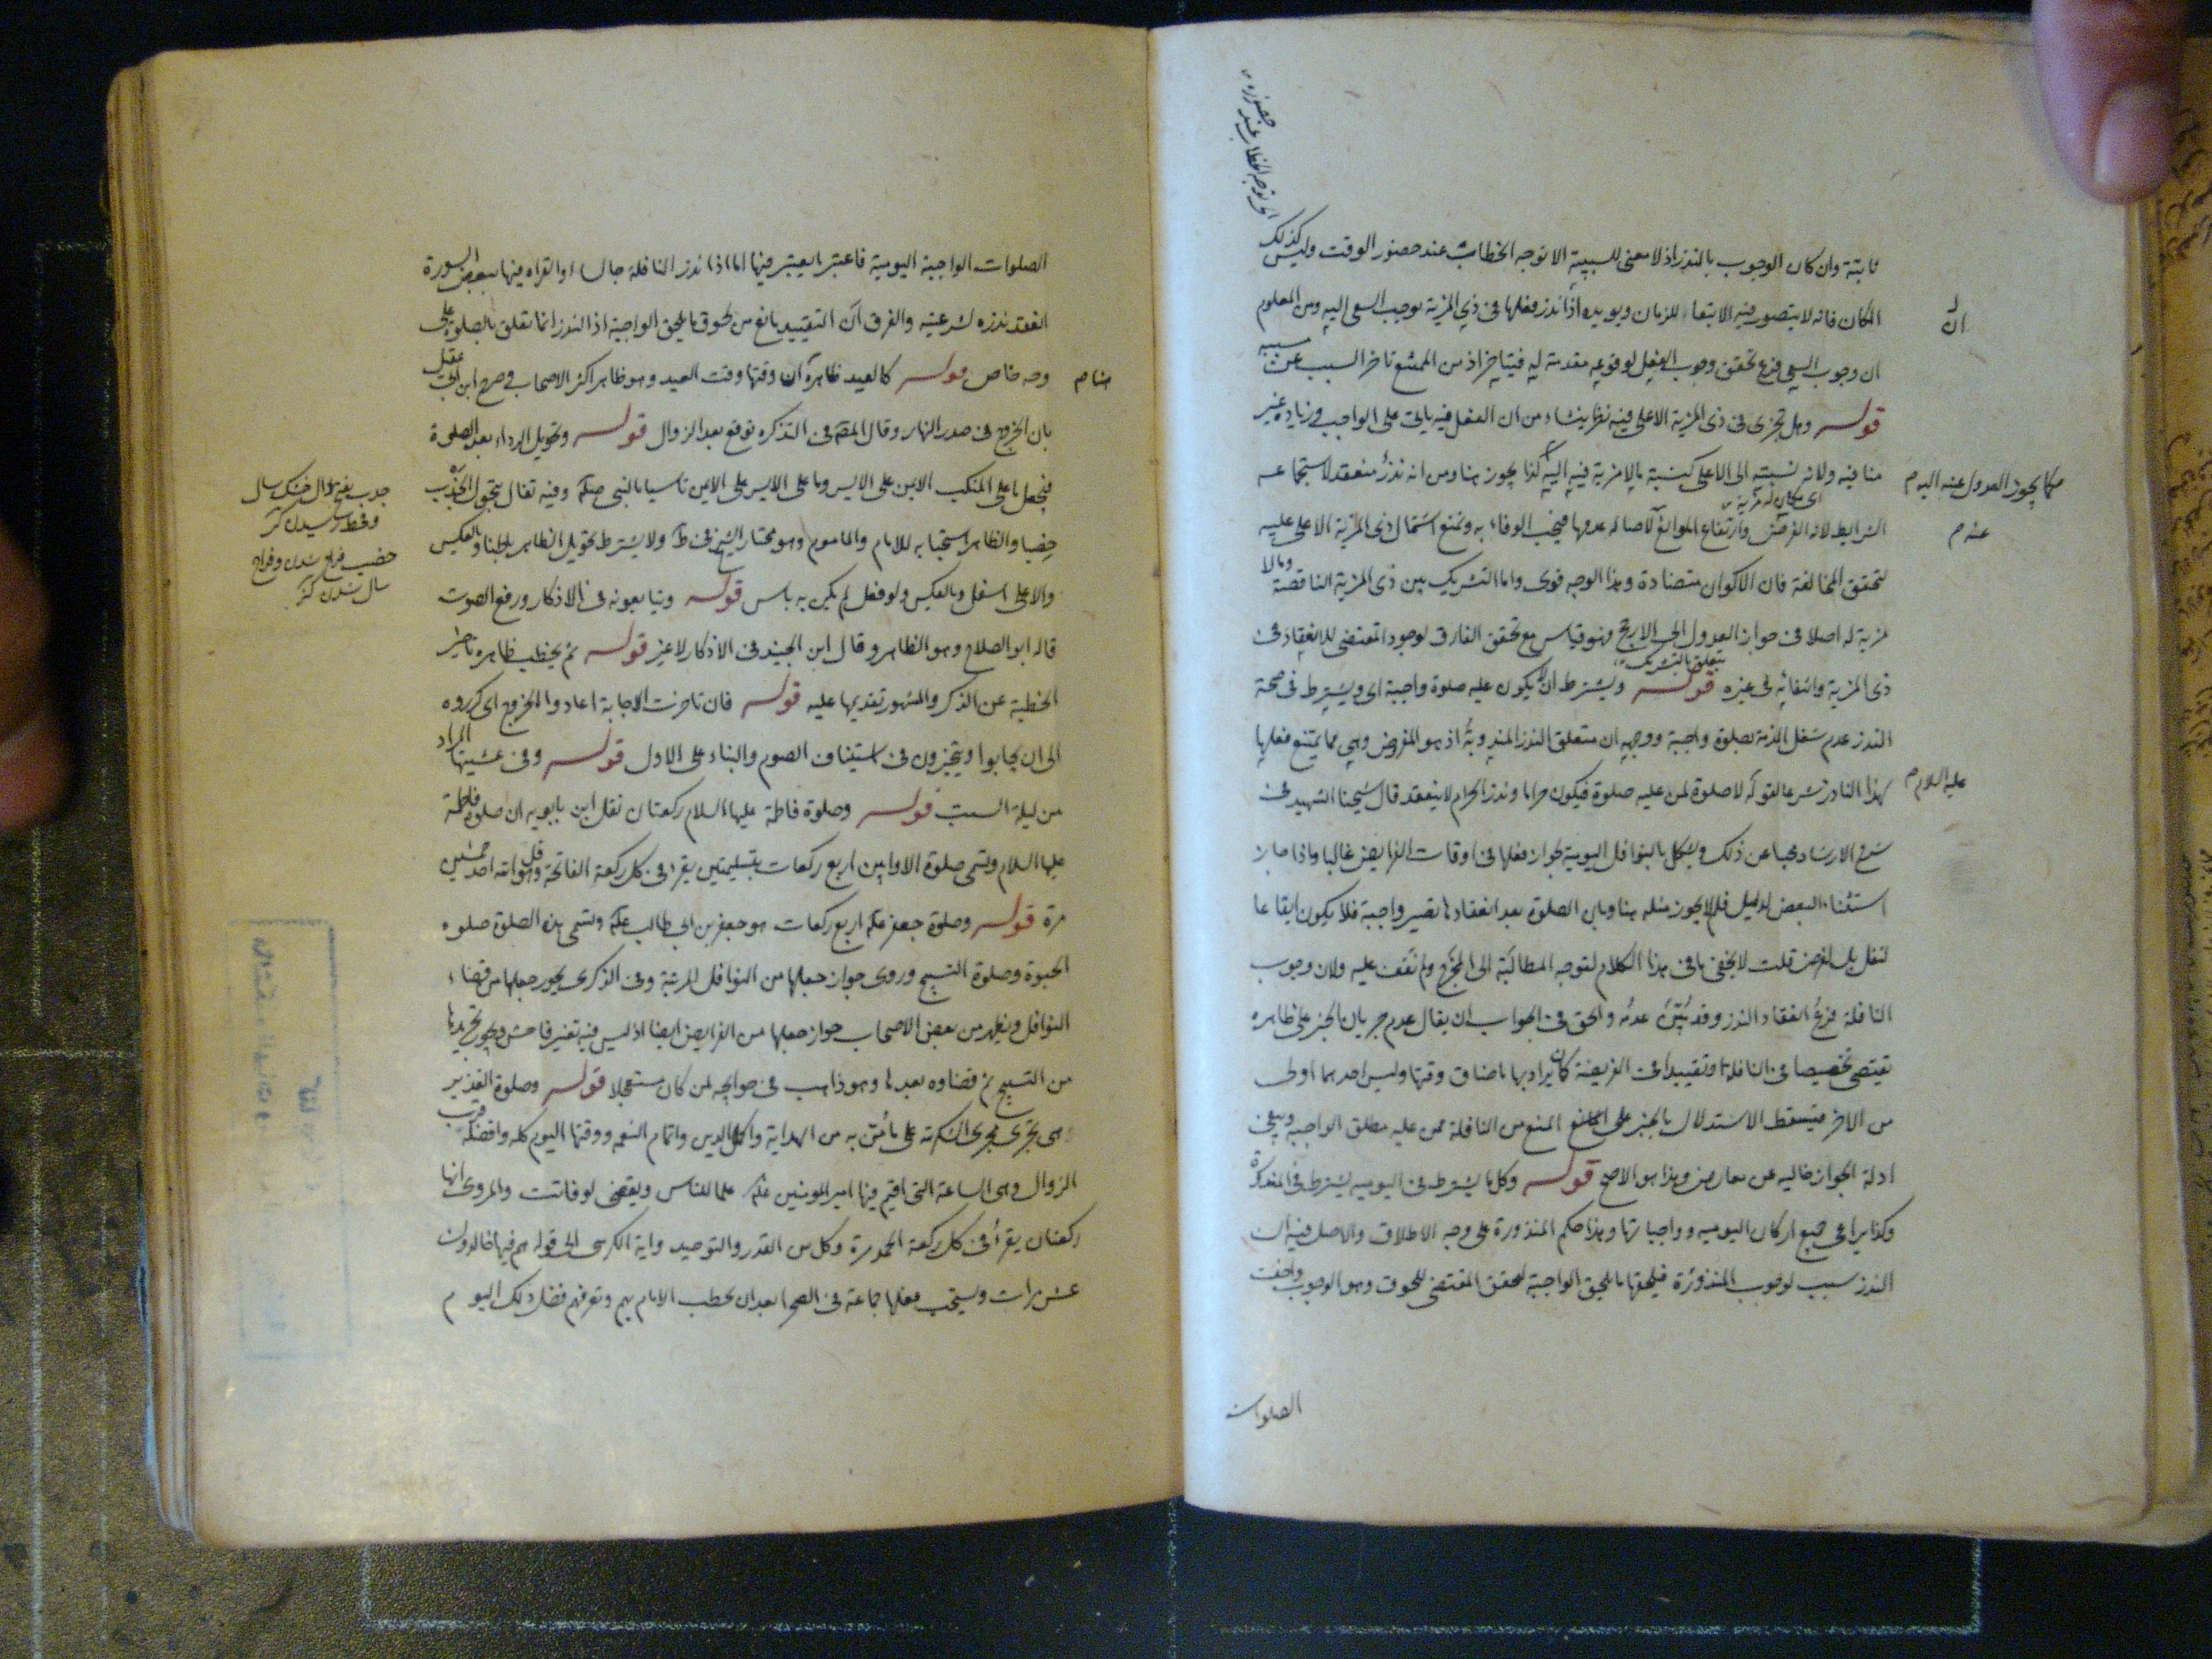 ثابتة وان كان الوجوب بالنذر اذ لا معنى للسببية الا توجه الخطاب عند حضور الوقت وليس كذلك
المكان فانه لا يتصور فيه الا تبعا للزمان ويويده اذا نذر فعلها فى ذي المزية يوجب السعى اليه ومن المعلوم
ان وجوب السعى فرع تحقق وجوب الفعل لوقوعه مقدمة له فيتاخر اذ من الممتنع تاخر السبب عن مسببه
قوله وهل تجزى فى ذى المزية الاعلى فيه نظر ينشاء من ان الفعل فيه ياتى على الواجب وزيادة غير
منافيه ولانه نسبته الى الاعلى كنسبة ما لا مزية فيه اليه كذا يجوز هنا ومن انه نذر منعقد لاستجماعه
كما يجوز العدول عنه اليه م
الشرايط لانه الفرض وارتفاع الموانع لاصاله عدمها فيجب الوفاء به ويمنع اشتمال ذى المزية الاعلى عليه
لتحقق المخالفة فان الاكوان متضادة وهذا الوجه قوى واما التشريك بين ذى المزية الناقصة وما لا
مزية له اصلا فى جواز العدول الى الارجح فهو قياس مع تحقق الفارق لوجود المقتضى للانعقاد فى
يتعلق بالتشريك
ذى المزية وانتفائه فى غيره قوله ويشترط ان لا يكون عليه صلوة واجبة اى ويشترط فى صحة
النذر عدم شغل الذمة بصلوة واجبة ووجهه ان متعلق النذر المندوبة اذ هو المفروض وهى مما يمتنع فعلها
لهذا الناذر شرعا لقوله لا صلوة لمن عليه صلوة فيكون حراما ونذر الحرام لا ينعقد قال شيخنا الشهيد فى
عليه السلام م
شرح الارشاد مجيبا عن ذلك ويشكل بالنوافل اليومية لجواز فعلها فى اوقات الفرايض غالبا واذا جاز
استثناء البعض لدليل فلم لا يجوز مثله هنا وبان الصلوة بعد انعقادها تصير واجبة فلا يكون ايقاعا
لنفل بل لفرض قلت لا يخفى ما فى هذا الكلام لتوجه المطالبة الى المخرج ولم نقف عليه ولان وجوب
النافلة فرع انعقاد النذر وقد تبين عدمه والحق فى الجواب ان يقال عدم جريان الخبر على ظاهره
يقتضى تخصيصا فى النافلة او تقييدا فى الفريضة كان يراد بها ما ضاق وقتها وليس احدهما اولى
من الاخر فيسقط الاستدلال بالخبر على المنع من النافلة ممن عليه مطلق الواجبه ويبقى
ادلة الجواز خاليه عن معارض وهذا هو الاصح قوله وكل ما يشترط فى اليوميه يشترط فى المنذورة
وكذا يراعى جميع اركان اليوميه وواجباتها وهذا حكم المنذورة على وجه الاطلاق والاصل فيه ان
النذر سبب لوجوب المنذورة فيلحقها ما يلحق الواجبة لتحقق المقتضى للحوق وهو الوجوب
الصلوات
الصلوات الواجبة اليومية فاعتبر ما يعتبر فيها اما اذا نذر النافلة جالسا او القراة فيها ببعض السورة
انعقد نذره لشرعيته والفرق ان التقييد مانع من لحوق ما يلحق الواجبة اذ النذر انما تعلق بالصلوة على
وجه خاص قوله كالعيد ظاهره ان وقتها وقت العيد وهو ظاهر اكثر الاصحاب وصرح ابن ابى عقيل
بان الخروج فى صدر النهار وقال المصم فى التذكره توقع بعد الزوال قوله وتحويل الرداء بعد الصلوة
فيجعل ما على المنكب الايمن على الايسر وما على الايسر على الايمن تاسيا بالنبى صلعم وفيه تفال بتحول الجدب
خصبا والظاهر استحبابه للامام والماموم وهو مختار الشيخ فى ط ولا يشترط تحويل الظاهر باطنا وبالعكس
والاعلى اسفل وبالعكس ولو فعل لم يكن به باس قوله ويتابعونه فى الاذكار ورفع الصوت
قاله ابو الصلاح وهو الظاهر وقال ابن الجنيد فى الاذكار لا غير قوله ثم يخطب ظاهره تاخير
الخطبة عن الذكر والمشهور تقديمها عليه قوله فان تاخرت الاجابة اعادوا الخروج اى كرروه
الى ان يجابوا ويتخيرون فى استيناف الصوم والبناء على الاول قوله وفى عشيتها المراد
من ليلة السبت قوله وصلوة فاطمة عليها السلام ركعتان نقل ابن بابويه ان صلوة فاطمة
عليها السلام وتسمى صلوة الاوابين اربع ركعات بتسليمتين يقرء فى كل ركعة الفاتحة وقل هو الله احد خمسين
مرة قوله وصلوة جعفر علم اربع ركعات هو جعفر بن ابى طالب علم وتسمى هذه الصلوة صلوه
الحبوة وصلوة التسبيح وروى جواز جعلها من النوافل المرتبة وفى الذكرى يجوز جعلها من قضاء
النوافل ويظهر من بعض الاصحاب جواز جعلها من الفرايض ايضا اذ ليس فيه تغير فاحش ويجوز تجريدها
من التسبيح ثم قضاوه بعدها وهو ذاهب فى حوائجه لمن كان مستعجلا قوله وصلوة الغدير
وهى تجرى مجرى الشكر لله على ما من به من الهداية واكمال الدين واتمام النعمه ووقتها اليوم كله وافضله قرب
الزوال وهى الساعة التى اقيم فيها امير المومنين علم علما للناس ويقضى لو فاتت والمروى انها
ركعتان يقرء فى كل ركعة الحمد مرة وكل من القدر والتوحيد واية الكرسى الى قوله هم فيها خالدون
عشر مرات ويستحب فعلها جماعة فى الصحراء بعد ان يخطب الامام بهم ويعرفهم فضل ذلك اليوم